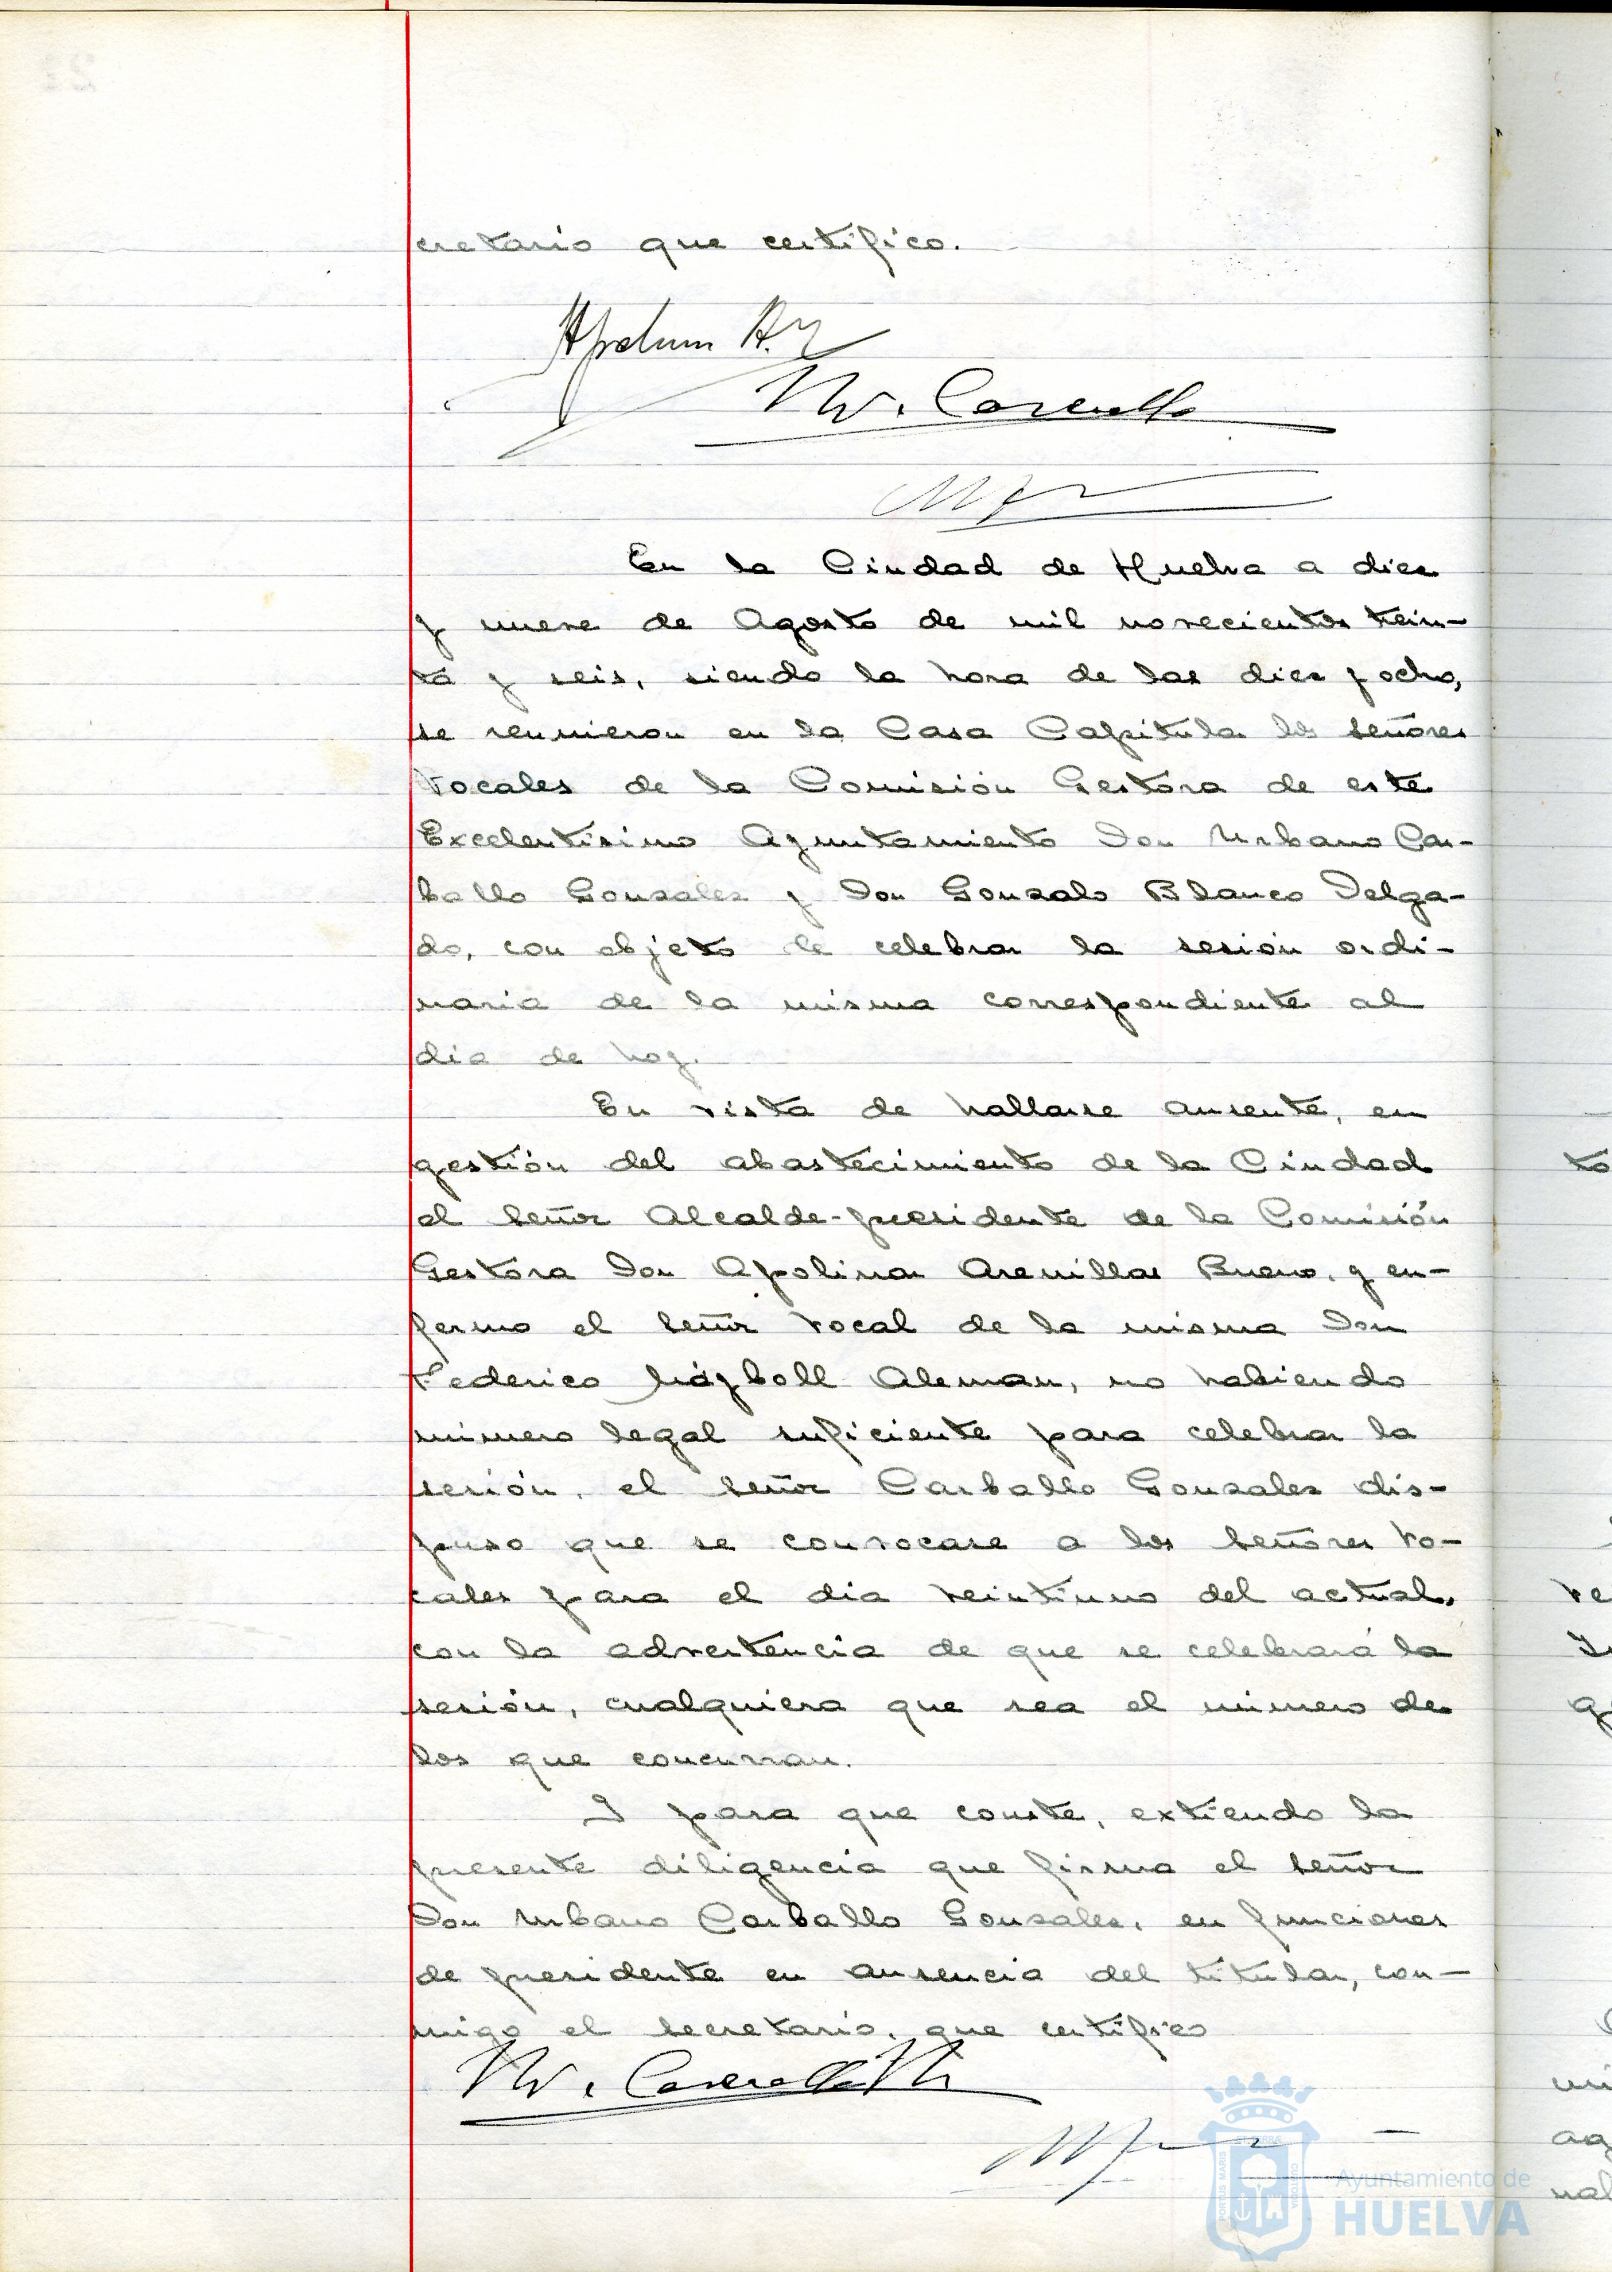 cretario que certifico.
Apolinar A.
U. Carballo
En la Ciudad de Huelva a diez
y nueve de Agosto de mil novecientos trein-
ta y seis, siendo la hora de las diez y ocho,
se reunieron en la Casa Capitular los Señores
Vocales de la Comisión Gestora de este
Excelentísimo Ayuntamiento Don Urbano Car-
ballo Gonzalez y Don Gonzalo Blanco Delga-
do, con objeto de celebrar la sesión ordi-
naria de la misma correspondiente al
dia de hoy.
En vista de hallarse ausente, en
gestión del abastecimiento de la Ciudad
el Señor Alcalde-presidente de la Comisión
Gestora Don Apolinar Arenillas Bueno, y en-
fermo el Señor Vocal de la misma Don
Federico Alemán, no habiendo
número legal suficiente para celebrar la
sesión, el Señor Carballo Gonzalez dis-
puso que se convocase a los Señores Vo-
cales para el dia veintiuno del actual,
con la advertencia de que se celebrará la
sesión, cualquiera que sea el número de
los que concurran.
Y para que conste, extiendo la
presente diligencia que firma el Señor
Don Urbano Carballo Gonzalez, en funciones
de presidente en ausencia del titular, con-
migo el Secretario, que certifico
U. Carballo
Ayuntamiento de
HUELVA